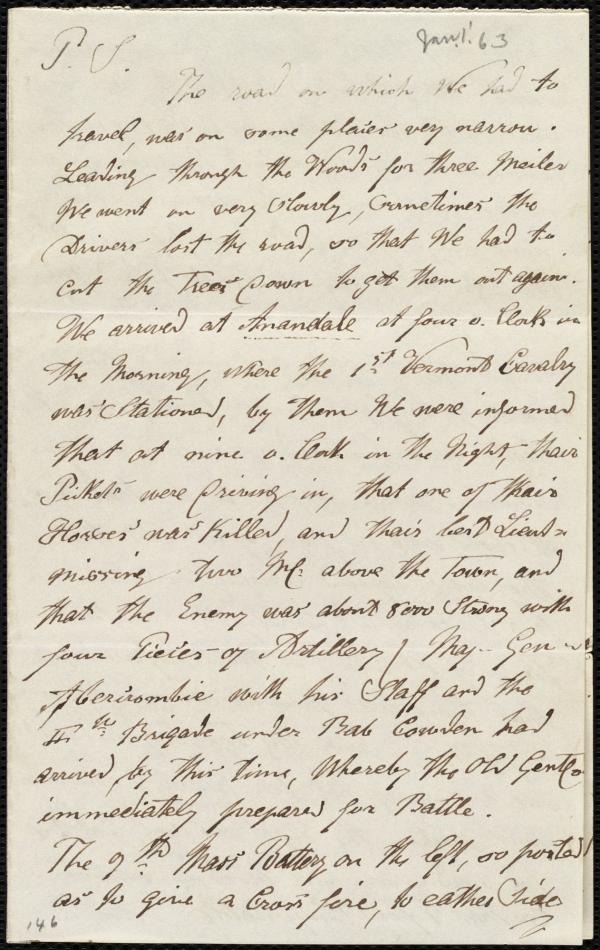 Jan. 1. 63
P. S.
The road on which We had to
travel, was on some places very narrow.
Leading through the Woods for three Meiles
We went on very slowly, Sometimes the
Drivers lost the road, so that We had to
cut the Trees Down to get them out again.
We arrived at Anandale at four o. Clock in
the Morning, where the 1st Vermont Cavalry
was Stationed, by them We were informed
that at nine o. Clock in the Night, thair
Pickets were Driving in, that one of thair
Horses was Killed, and thair best Lieut-
missing two Ml. above the Town, and
that the Enemy was about 8000 Strong with
four Pieces of Artillery / Maj- Gen-
Abercrombie with his Staff and the
II Brigade under Bab Cowden had
arrived by this time, Whereby the Old Gent
immediately prepared for Battle.
The 9th Mass Battery on the left, so posted
as to give a Cross fire, to eather Side
146